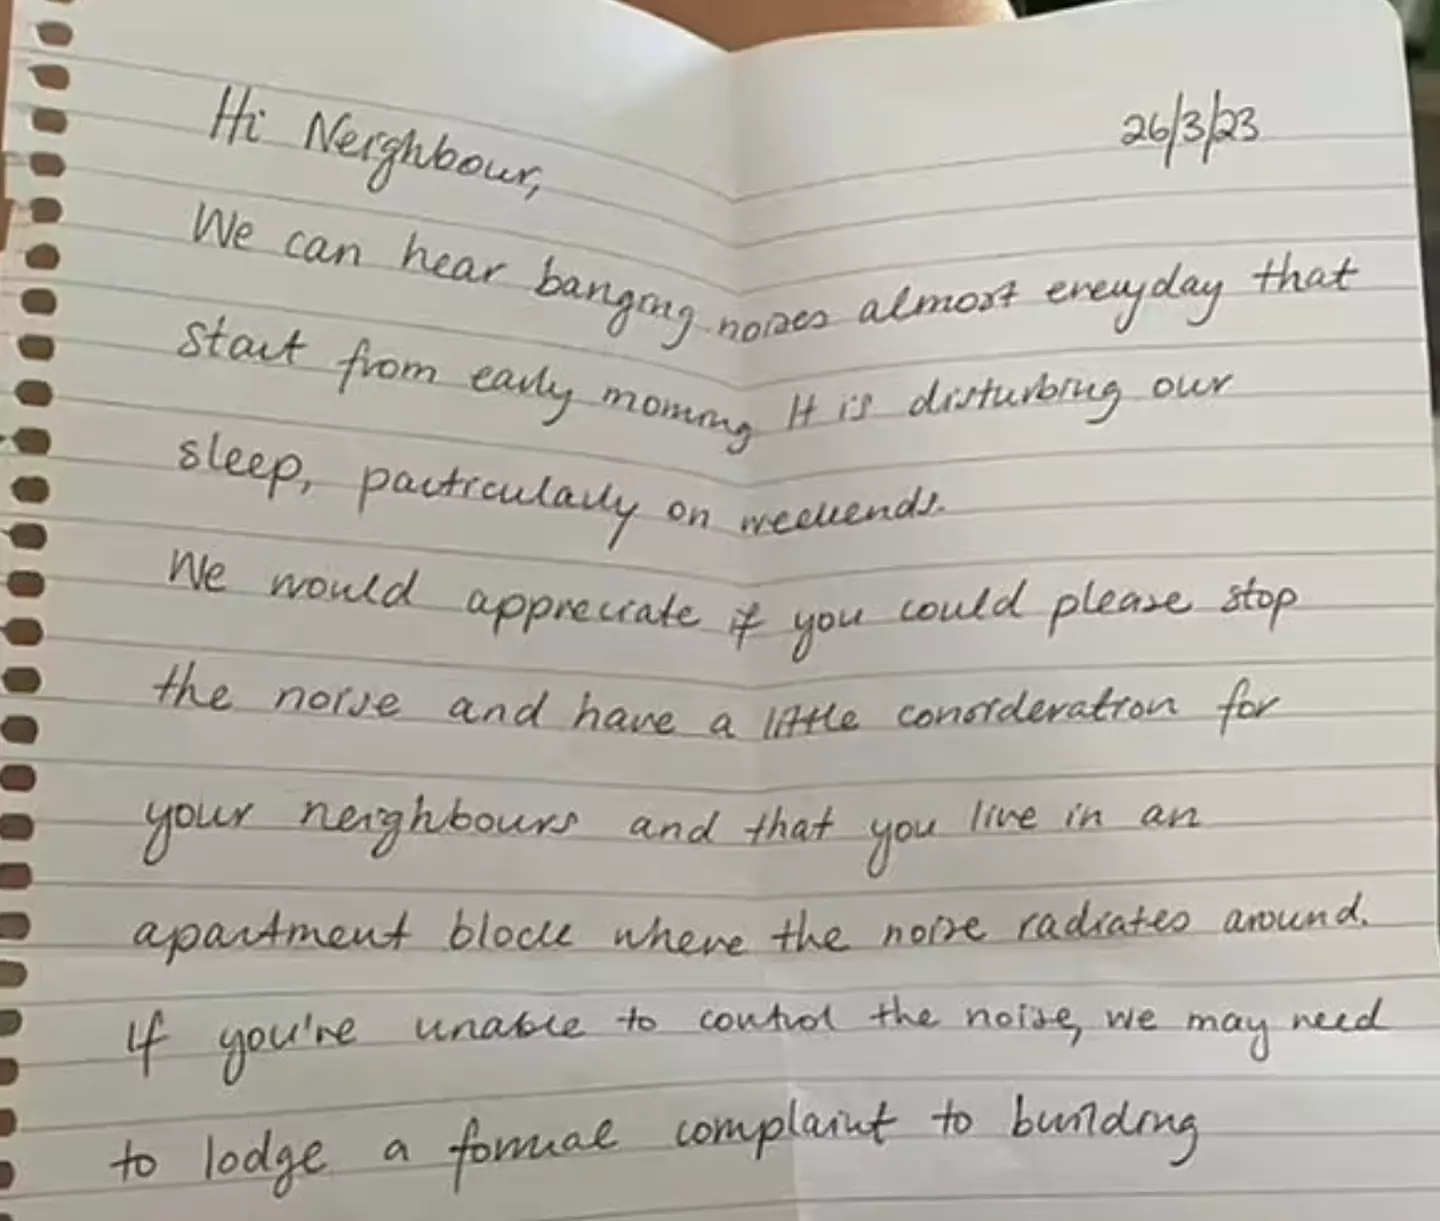 26/3/23
Hi Neighbour,
We can hear banging noises almost everyday that
start from early morning It is disturbing our
sleep, particularly on weekends.
We would appreciate if you could please stop
the noise and have a little consideration for
your neighbours and that you live in an
apartment block where the noise radiates around.
If you're unable to control the noise, we may need
to lodge a formal complaint to building